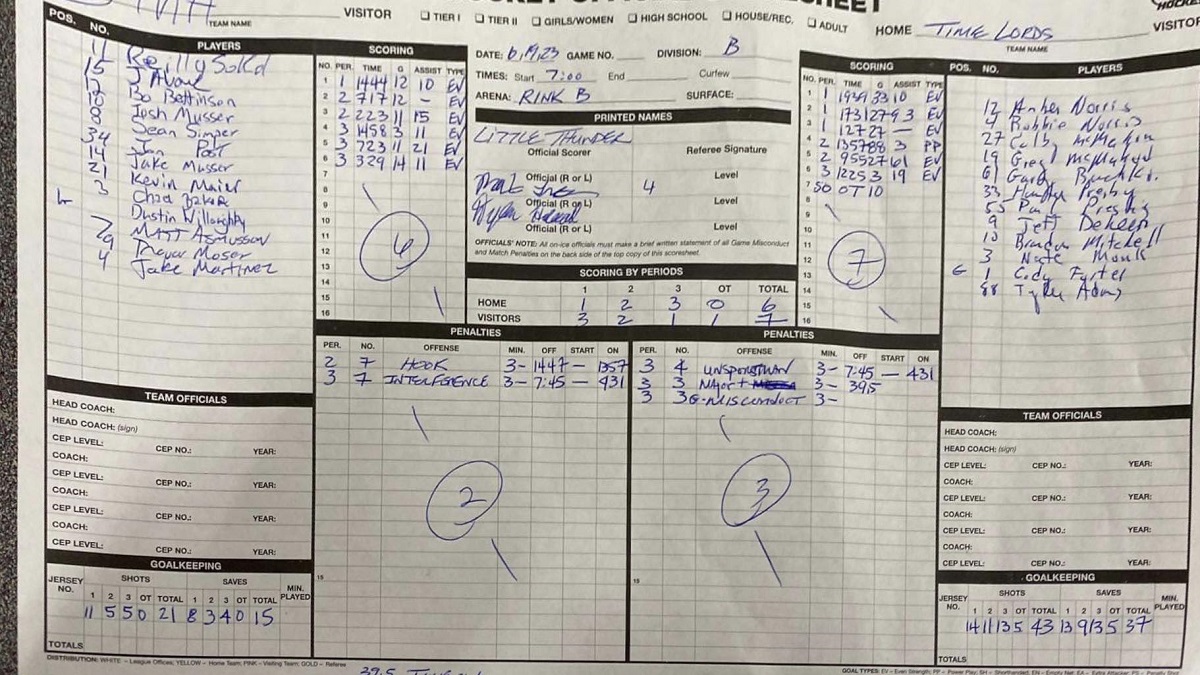 VISITOR
TEAM NAME
☐ TIER I ☐ TIER II ☐ GIRLS/WOMEN ☐ HIGH SCHOOL ☐ HOUSE/REC. ☐ ADULT
HOME TIME LORDS
TEAM NAME
VISITOR
POS. NO. PLAYERS
11 Reilly Solid
15 J Avoul
17 Bo Bettinson
18 Josh Musser
8 Sean Simper
34 Jon Post
14 Jake Musser
21 Kevin Maier
3 Chad
Dustin Willoughby
Matt Asmusson
29 Trevor Moser
4 Jake Martinez
SCORING
NO. PER. TIME G ASSIST TYPE
1 1 1444 12 10 EV
2 2 717 12 - EV
3 2 223 11 15 EV
4 3 1458 3 11 EV
5 3 723 11 21 EV
6 3 329 14 11 EV
7
8
9
10
11
12
13
14
15
16
6
DATE: 6,19,23 GAME NO. DIVISION: B
TIMES: Start 7:00 End Curfew
ARENA: RINK B SURFACE:
PRINTED NAMES
LITTLE THUNDER
Official Scorer Referee Signature
4
Official (R or L) Level
Official (R or L) Level
Official (R or L) Level
OFFICIALS' NOTE: All on-ice officials must make a brief written statement of all Game Misconduct
and Match Penalties on the back side of the top copy of this scoresheet.
SCORING BY PERIODS
1 2 3 OT TOTAL
HOME 1 2 3 0 6
VISITORS 3 2 1 1 7
SCORING
NO. PER. TIME G ASSIST TYPE
1 1 1939 33 10 EV
2 1 1731 27 9 3 EV
3 1 127 27 — EV
4 2 1357 88 3 PP
5 2 955 27 61 EV
6 3 122 53 19 EV
7 SO OT 10
8
9
10
11
12
13
14
15
16
7
POS. NO. PLAYERS
12 Norris
4 Robbie Norris
27 Colby McMahon
19 Greg McMahon
61 Gary
33 Hunter Presby
53 Paul Presby
9 Jeff
10 Brandon Mitchell
3 Nate Monk
G 1 Cody Foster
88 Tyler Adams
PENALTIES
PER. NO. OFFENSE MIN. OFF START ON
2 7 HOOK 3- 1447 — 1357
3 7 INTERFERENCE 3- 7:45 — 431
2
PENALTIES
PER. NO. OFFENSE MIN. OFF START ON
3 4 UNSPORTMAN 3- 7:45 — 431
3 3 Major + 3- 39.5
3 3 G-MISCONDUCT 3-
3
TEAM OFFICIALS
HEAD COACH:
HEAD COACH: (sign)
CEP LEVEL: CEP NO.: YEAR:
COACH:
CEP LEVEL: CEP NO.: YEAR:
COACH:
CEP LEVEL: CEP NO.: YEAR:
COACH:
CEP LEVEL: CEP NO.: YEAR:
GOALKEEPING
JERSEY NO. SHOTS SAVES MIN. PLAYED
1 2 3 OT TOTAL 1 2 3 OT TOTAL
11 5 5 0 21 8 3 4 0 15
TOTALS
TEAM OFFICIALS
HEAD COACH:
HEAD COACH: (sign)
CEP LEVEL: CEP NO.: YEAR:
COACH:
CEP LEVEL: CEP NO.: YEAR:
COACH:
CEP LEVEL: CEP NO.: YEAR:
COACH:
CEP LEVEL: CEP NO.: YEAR:
GOALKEEPING
JERSEY NO. SHOTS SAVES MIN. PLAYED
1 2 3 OT TOTAL 1 2 3 OT TOTAL
14 11 13 5 43 13 9 13 5 37
TOTALS
DISTRIBUTION: WHITE – League Offices; YELLOW – Home Team; PINK – Visiting Team; GOLD – Referee
39.5